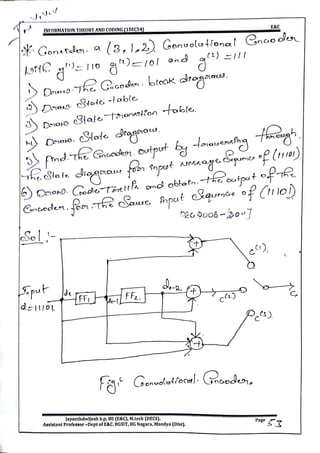 INFORMATION THEORY AND CODING (15EC54) E&C
* Consider a (3,1,2) Convolutional Encoder
with g(1) = 110 g(2) = 101 and g(3) = 111
1) Draw The Encoder block diagram.
2) Draw State-table
3) Draw State Transition table.
4) Draw State diagram.
5) Find The Encoder output by traversing through
The State diagram for input Message Sequence of (11101)
6) Draw Code Trellis and obtain the output of the
Encoder for The Same input Sequence of (11101)
Sol:-
C(1)
Input
d=11101
FF1
FF2
+
C(2)
C(3)
Fig: Convolutional Encoder.
Assistant Professor -Dept of E&C, BGSIT, BG Nagara, Mandya (Dist).
Page 53